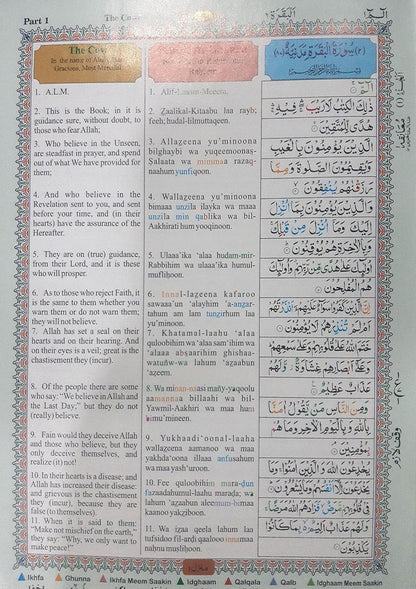 Part 1
The Cow
البقرة ٢
الٓمّٓ
The Cow
In the name of Allah,
Gracious, Most Merciful
(٢) سُوْرَةُ الْبَقَرَةِ مَدَنِيَّةٌ
1. A.L.M.
2. This is the Book; in it is
guidance sure, without doubt, to
those who fear Allah;
3. Who believe in the Unseen,
are steadfast in prayer, and spend
out of what We have provided
for them;
4. And who believe in the
Revelation sent to you, and sent
before your time, and (in their
hearts) have the assurance of the
Hereafter.
5. They are on (true) guidance,
from their Lord, and it is these
who will prosper.
6. As to those who reject Faith, it
is the same to them whether you
warn them or do not warn them;
they will not believe.
7. Allah has set a seal on their
hearts and on their hearing. And
on their eyes is a veil; great is the
chastisement they (incur).
8. Of the people there are some
who say: "We believe in Allah and
the Last Day;" but they do not
(really) believe.
9. Fain would they deceive Allah
and those who believe, but they
only deceive themselves, and
realize (it) not!
10. In their hearts is a disease; and
Allah has increased their disease:
and grievous is the chastisement
they (incur), because they are
false (to themselves).
11. When it is said to them:
"Make not mischief on the earth,"
they say: "Why, we only want to
make peace!"
1. Alif-Laaam-Meeem.
2. Zaalikal-Kitaabu laa rayb;
feeh; hudal-lilmuttaqeen.
3. Allazeena yu'minoona
bilghaybi wa yuqeemoonas-
Salaata wa mimmaa razaq-
naahum yunfiqoon.
4. Wallazeena yu'minoona
bimaaa unzila ilayka wa maaa
unzila min qablika wa bil-
Aakhirati hum yooqinoon.
5. Ulaaa'ika 'alaa hudam-mir-
Rabbihim wa ulaaa'ika humul-
muflihoon.
6. Innal-lazeena kafaroo
sawaaa'un 'alayhim 'a-anzar-
tahum am lam tunzirhum laa
yu'minoon.
7. Khatamal-laahu 'alaa
quloobihim wa 'alaa sam'ihim wa
'alaaa absaarihim ghishaa-
watunw-wa lahum 'azaabun
'azeem.
8. Wa minan-naasi mañy-yaqoolu
aamannaa billaahi wa bil-
Yawmil-Aakhiri wa maa hum
bimu'mineen.
9. Yukhaadi'oonal-laaha
wallazeena aamanoo wa maa
yakhda'oona illaaa anfusahum
wa maa yash'uroon.
10. Fee quloobihim mara-dun
fazaadahumul-laahu marada; wa
lahum 'azaabun aleemum-bimaa
kaanoo yakziboon.
11. Wa izaa qeela lahum laa
tufsidoo fil-ardi qaalooo innamaa
nahnu muslihoon.
الٓمّٓ
ذٰلِكَ الْكِتٰبُ لَا رَيْبَ فِيْهِ
هُدًى لِّلْمُتَّقِيْنَ
الَّذِيْنَ يُؤْمِنُوْنَ بِالْغَيْبِ
وَيُقِيْمُوْنَ الصَّلٰوةَ وَمِمَّا
رَزَقْنٰهُمْ يُنْفِقُوْنَ
وَالَّذِيْنَ يُؤْمِنُوْنَ بِمَآ اُنْزِلَ
اِلَيْكَ وَمَآ اُنْزِلَ مِنْ قَبْلِكَ
وَبِالْاٰخِرَةِ هُمْ يُوْقِنُوْنَ
اُولٰٓئِكَ عَلٰى هُدًى مِّنْ رَّبِّهِمْ وَاُولٰٓئِكَ
هُمُ الْمُفْلِحُوْنَ
اِنَّ الَّذِيْنَ كَفَرُوْا سَوَآءٌ عَلَيْهِمْ ءَاَنْذَرْتَهُمْ
اَمْ لَمْ تُنْذِرْهُمْ لَا يُؤْمِنُوْنَ
خَتَمَ اللّٰهُ عَلٰى قُلُوْبِهِمْ وَعَلٰى سَمْعِهِمْ
وَعَلٰٓى اَبْصَارِهِمْ غِشَاوَةٌ وَّلَهُمْ
عَذَابٌ عَظِيْمٌ
وَمِنَ النَّاسِ مَنْ يَّقُوْلُ اٰمَنَّا
بِاللّٰهِ وَبِالْيَوْمِ الْاٰخِرِ وَمَا هُمْ
بِمُؤْمِنِيْنَ
يُخٰدِعُوْنَ اللّٰهَ وَالَّذِيْنَ اٰمَنُوْا وَمَا
يَخْدَعُوْنَ اِلَّآ اَنْفُسَهُمْ وَمَا يَشْعُرُوْنَ
فِيْ قُلُوْبِهِمْ مَّرَضٌ فَزَادَهُمُ اللّٰهُ مَرَضًا
وَلَهُمْ عَذَابٌ اَلِيْمٌ بِمَا كَانُوْا
يَكْذِبُوْنَ
وقف لازم
منزل ١
Ikhfa
Ghunna
Ikhfa Meem Saakin
Idghaam
Qalqala
Qalb
Idghaam Meem Saakin